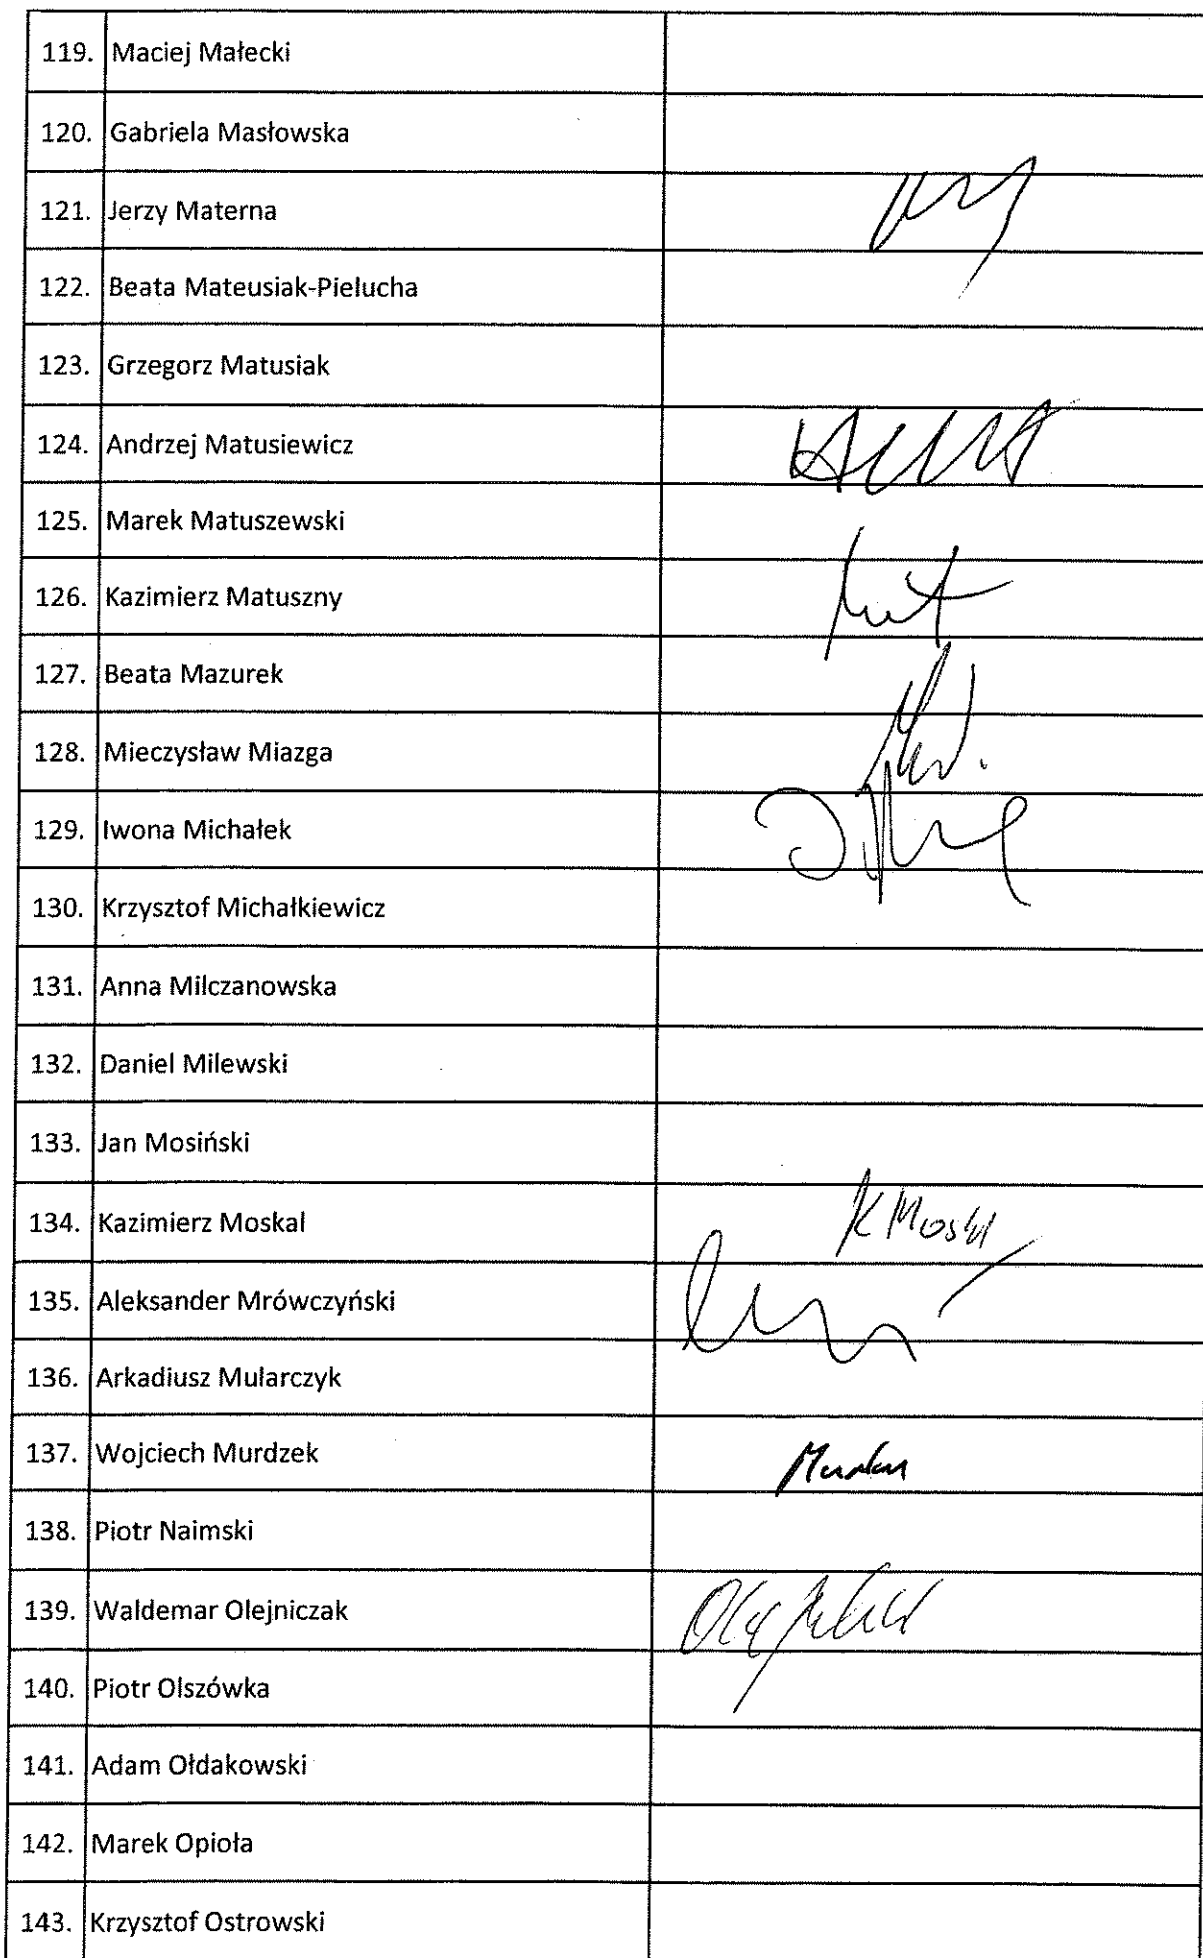 119. Maciej Małecki
120. Gabriela Masłowska
121. Jerzy Materna
122. Beata Mateusiak-Pielucha
123. Grzegorz Matusiak
124. Andrzej Matusiewicz
125. Marek Matuszewski
126. Kazimierz Matuszny
127. Beata Mazurek
128. Mieczysław Miazga
129. Iwona Michałek
130. Krzysztof Michałkiewicz
131. Anna Milczanowska
132. Daniel Milewski
133. Jan Mosiński
134. Kazimierz Moskal
135. Aleksander Mrówczyński
136. Arkadiusz Mularczyk
137. Wojciech Murdzek
138. Piotr Naimski
139. Waldemar Olejniczak
140. Piotr Olszówka
141. Adam Ołdakowski
142. Marek Opioła
143. Krzysztof Ostrowski